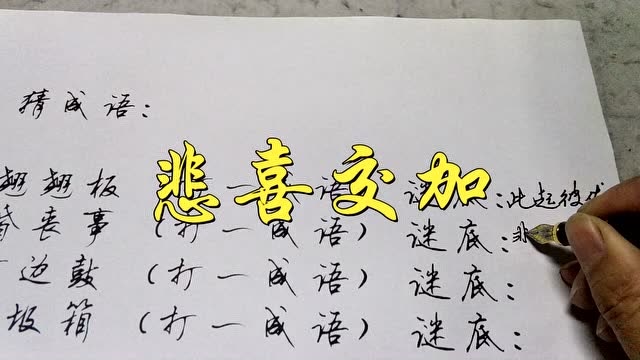 猜成语：
翘翘板 一 语 谜底：此起彼伏
悲喜交加
丧事（打一成语）谜底：非
边鼓（打一成语）谜底：
圾箱（打一成语）谜底：